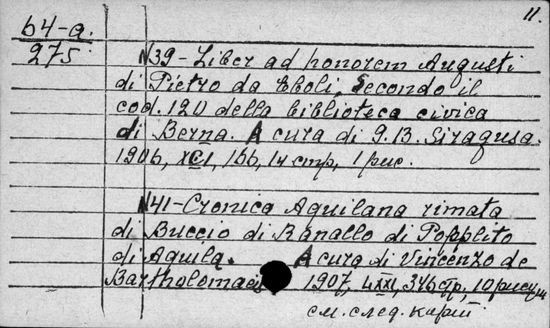 11.
64-a.
275
N39 - Liber ad honorem Augusti
di Pietro da Eboli, secondo il
cod. 120 della biblioteca civica
di Berna. A cura di G.B. Siragusa.
1906, XCI, 166, 14 стр., 1 рис.
N41 - Cronica Aquilana rimata
di Buccio di Ranallo di Popplito
di Aquila. A cura di Vincenzo de
Bartholomaeis 1907, 346 стр, 10 рисун
см. след. карт